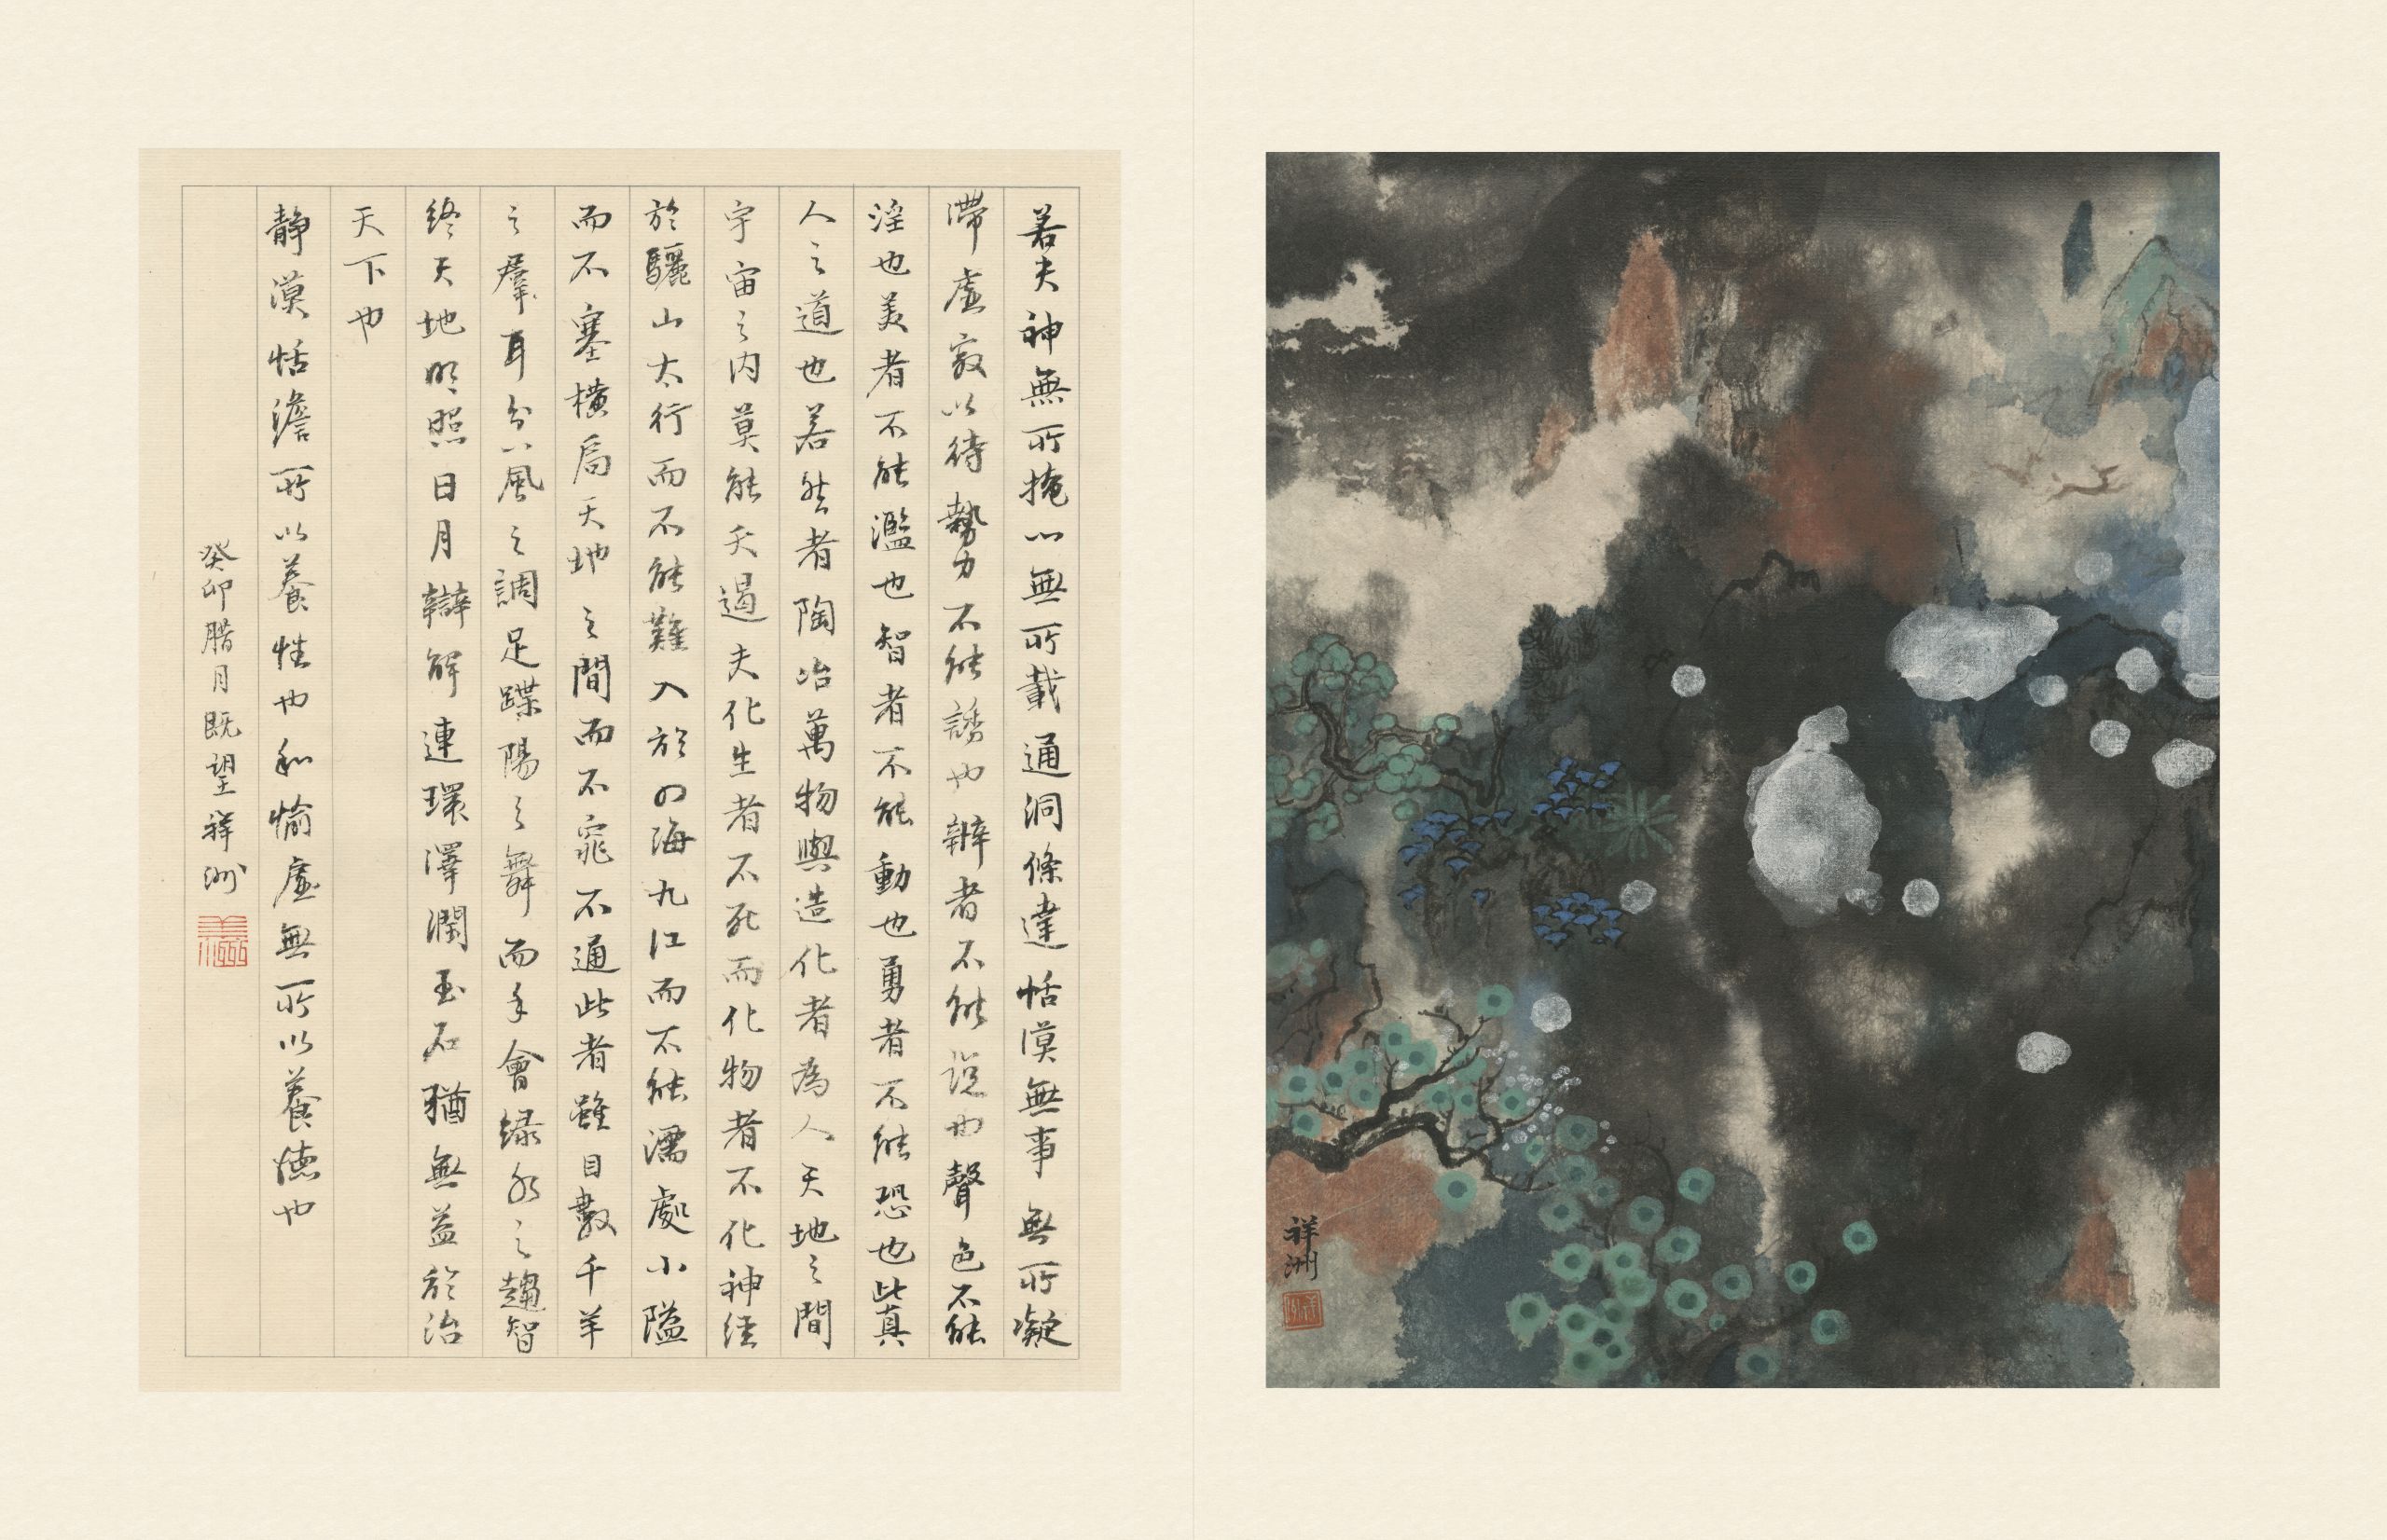 若夫神無所掩心無所載通洞條達恬漠無事無所凝
滯虛寂以待勢力不能誘也辯者不能說也聲色不能
淫也美者不能濫也智者不能動也勇者不能恐也此真
人之道也若然者陶冶萬物與造化者為人天地之間
宇宙之內莫能夭遏夫化生者不死而化物者不化神經
於驪山太行而不能難入於四海九江而不能濡處小隘
而不塞橫扃天地之間而不窕不通此者雖目數千羊
之羣耳分八風之調足蹀陽之舞而手會綠水之趨智
終天地明照日月辯解連環澤潤玉石猶無益於治
天下也
靜漠恬澹所以養性也和愉虛無所以養德也
癸卯腊月既望祥洲
祥洲